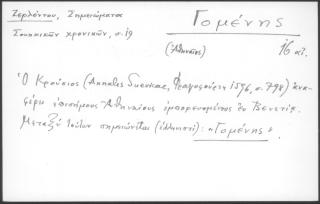 Ζερλέντου, Σημειώματα
Σουηκικῶν χρονικῶν, σ. 19
Γομένης
(Ἀθηναῖος)
16 αἰ.
Ὁ Κρούσιος (Annales Suevicae, Φραγκφούρτ 1596, σ. 798) ἀνα-
φέρει ἐπισήμους Ἀθηναίους ἐμπορευομένους ἐν Βενετίᾳ.
Μεταξὺ τούτων σημειώνεται (ἑλληνιστί): «Γομένης».